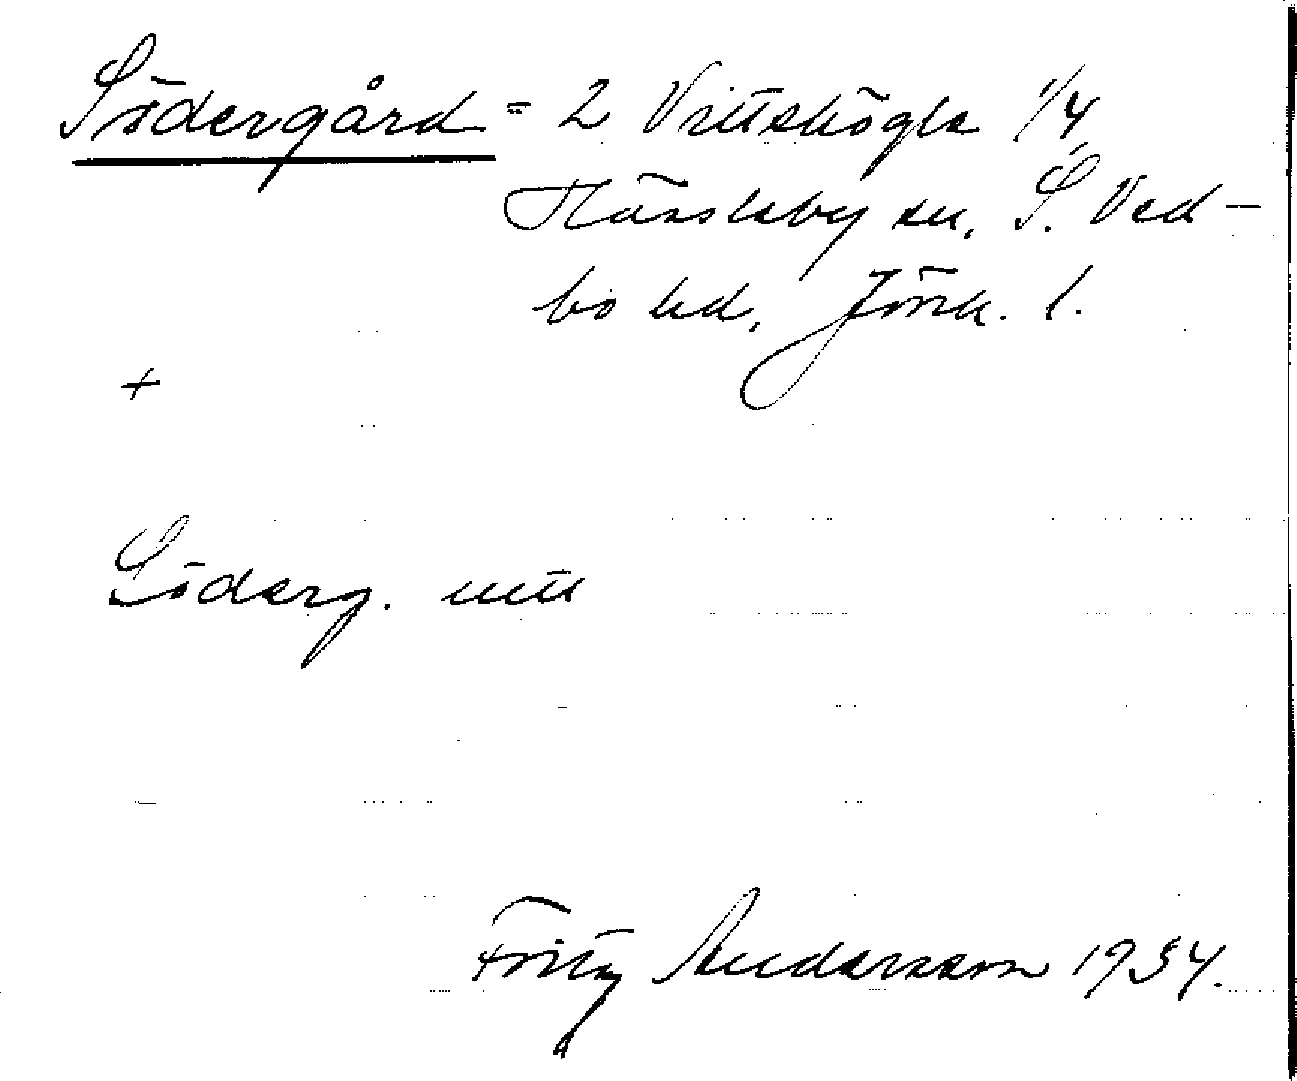 Södergård = 2 Vittskögle 1/4
Hässleby sn, S. Ved-
bo hd, Jönk. l.
+
Söderg.
Fritz Andersson 1934.